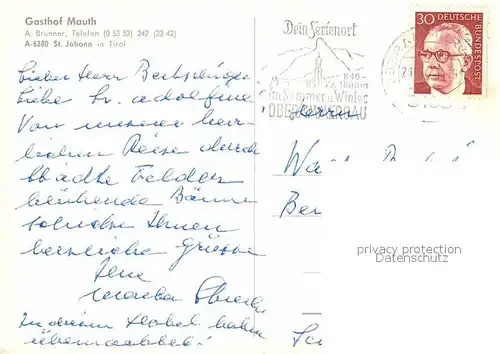 Gasthof Mauth
A. Brunner, Telefon (0 53 52) 242 (22.42)
A-6380 St. Johann in Tirol
Lieber Herr
Liebe Fr. Adolfine
Von unserer herr-
lichen Reise durch
Städte Felder
blühende Bäume
Ihnen
herzliche Grüsse
Ihre
In diesem Hotel haben
übernachtet!
Dein Ferienort
840-
im Sommer u. Winter
OBERAMMERGAU
30 DEUTSCHE
BUNDESPOST
Herrn
privacy protection
Datenschutz